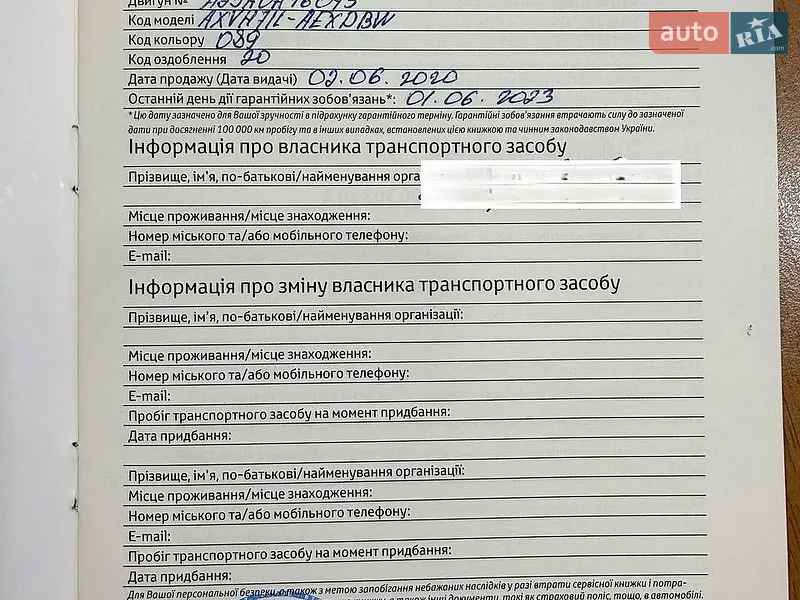 Двигун №
Код моделі AXVH71L-AEXDBW
Код кольору 089
Код оздоблення 20
Дата продажу (Дата видачі) 02.06.2020
Останній день дії гарантійних зобов'язань*: 01.06.2023
* Цю дату зазначено для Вашої зручності в підрахунку гарантійного терміну. Гарантійні зобов'язання втрачають силу до зазначеної
дати при досягненні 100 000 км пробігу та в інших випадках, встановлених цією книжкою та чинним законодавством України.
Інформація про власника транспортного засобу
Прізвище, ім'я, по-батькові/найменування орга
Місце проживання/місце знаходження:
Номер міського та/або мобільного телефону:
E-mail:
Інформація про зміну власника транспортного засобу
Прізвище, ім'я, по-батькові/найменування організації:
Місце проживання/місце знаходження:
Номер міського та/або мобільного телефону:
E-mail:
Пробіг транспортного засобу на момент придбання:
Дата придбання:
Прізвище, ім'я, по-батькові/найменування організації:
Місце проживання/місце знаходження:
Номер міського та/або мобільного телефону:
E-mail:
Пробіг транспортного засобу на момент придбання:
Дата придбання:
Для Вашої персональної безпеки, а також з метою запобігання небажаних наслідків у разі втрати сервісної книжки і потра-
також інші документи, такі як страховий поліс, тощо, в автомобілі.
auto RIA .com